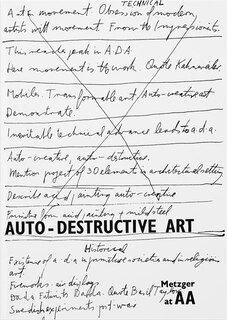 TECHNICAL
Art & movement Obsession of modern
artists with movement From the Impressionists.
This reaches peak in A.D.A.
Here movement is the work Quote Kahnweiler
Mobiles. Transformable art Auto-creative art
Demonstrate.
Inevitable technical advance leads to a.d.a.
Auto-creative, auto-destructive.
Mention project of 3D element in architectural setting
Describe acid painting auto-creative
acid painting & mild steel
AUTO-DESTRUCTIVE ART
Historical
Existence of a.d.a in primitive societies and in religious
art.
Fireworks - air displays
Dada Futurists Dadda. Quote Basil Taylor
Swedish experiments post-war
Metzger
at AA